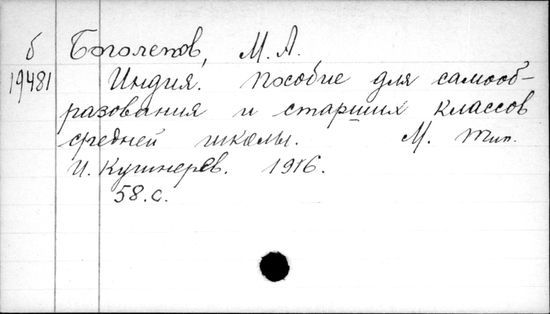 б Боголепов, М. А.
19481 Индия. Пособие для самооб-
разования и старших классов
средней школы. М. Тип.
И. Кушнерев. 1916.
58. с.